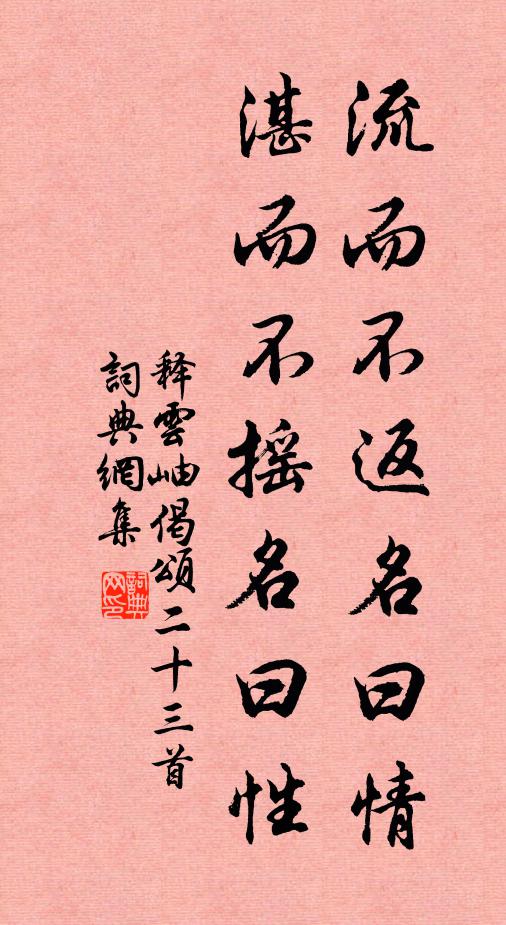 流而不返名曰情
湛而不摇名曰性
释雲岫偈頌二十三首
詞典網集
詞典網印